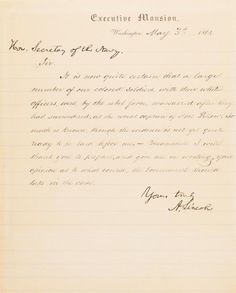 Executive Mansion,
Washington, May 3d, 1864
Hon. Secretary of the Navy
Sir.
It is now quite certain that a large
number of our colored soldiers, with their white
officers, were, by the rebel force, massacred after they
had surrendered, at the recent capture of Fort Pillow. So
much is known, though the evidence is not yet quite
ready to be laid before me. Meanwhile I will
thank you to prepare, and give me in writing your
opinion as to what course, the government should
take in the case.
Yours truly
A. Lincoln